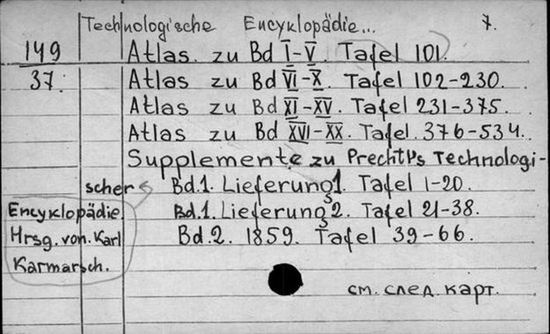 Technologische Encyklopädie... 7.
149 Atlas. zu Bd I-V. Tafel 101.
37. Atlas zu Bd VI-X. Tafel 102-230.
Atlas zu Bd XI-XV. Tafel 231-375.
Atlas zu Bd XVI-XX. Tafel. 376-534.
Supplemente zu Prechtl's Technologi-
scher Bd.1. Lieferung 1. Tafel 1-20.
Encyklopädie. Bd.1. Lieferung 2. Tafel 21-38.
Hrsg. von. Karl Bd.2. 1859. Tafel 39-66.
Karmarsch.
см. след. карт.